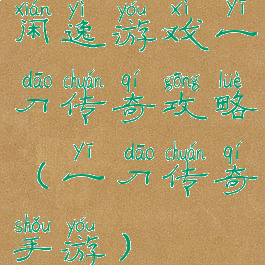 xián yì yóu xì yī
闲逸游戏一
dāo chuán qí gōng lüè
刀传奇攻略
yī dāo chuán qí
(一刀传奇
shǒu yóu
手游)